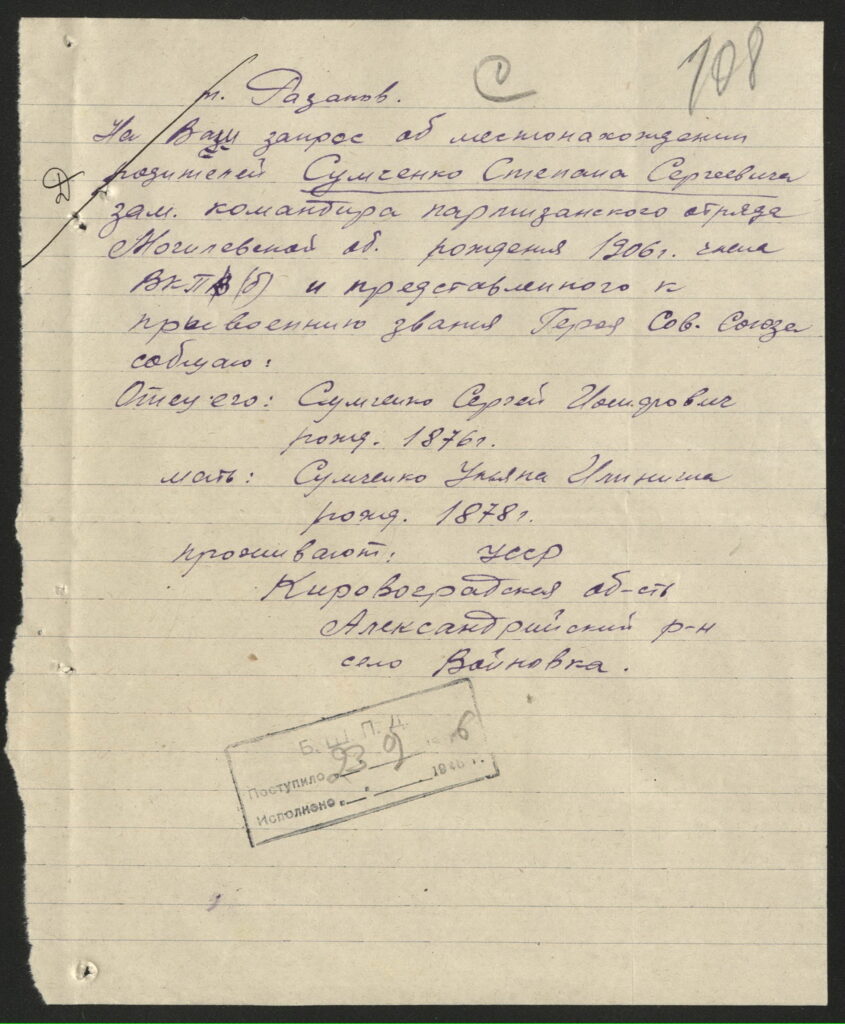 108
С
т. Разанов.
На Ваш запрос об местонахождении
родителей Сумченко Степана Сергеевича
зам. командира партизанского отряда
Могилевской об. рождения 1906 г. члена
ВКП(б) и представленного к
присвоению звания Героя Сов. Союза
собщаю:
Отец его: Сумченко Сергей Иосифович
рожд. 1876 г.
мать: Сумченко Ульяна
рожд. 1878 г.
проживают: УССР
Кировоградская об-сть
Александрийский р-н
село Войновка.
Б. Ш. П. Д.
Поступило 23
Исполнено 194 г.